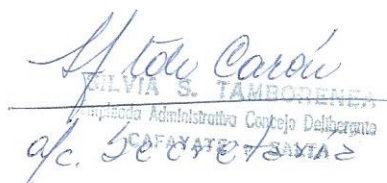 SILVIA S. TAMBORENEA
Empleada Administrativa Concejo Deliberante
CAFAYATE - SALTA
a/c. Secretaría